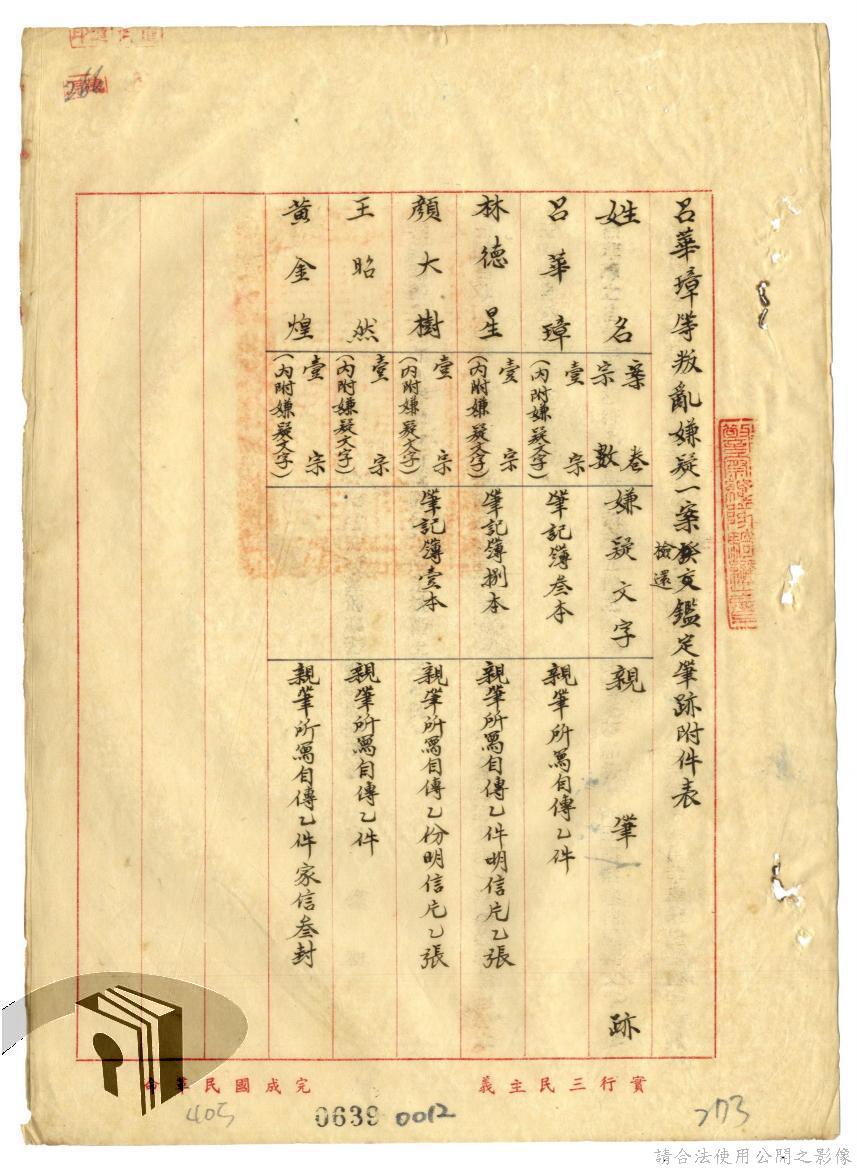 呂華璋等叛亂嫌疑一案發交鑑定筆跡附件表
檢還
姓名
案卷宗數
嫌疑文字
親筆跡
呂華璋
壹宗
(內附嫌疑文字)
筆記簿叁本
親筆所寫自傳乙件
林德星
壹宗
(內附嫌疑文字)
筆記簿捌本
親筆所寫自傳乙件明信片乙張
顏大樹
壹宗
(內附嫌疑文字)
筆記簿壹本
親筆所寫自傳乙份明信片乙張
王昭然
壹宗
(內附嫌疑文字)
親筆所寫自傳乙件
黃金煌
壹宗
(內附嫌疑文字)
親筆所寫自傳乙件家信叁封
實行三民主義
完成國民革命
0639
0012
273
請合法使用公開之影像